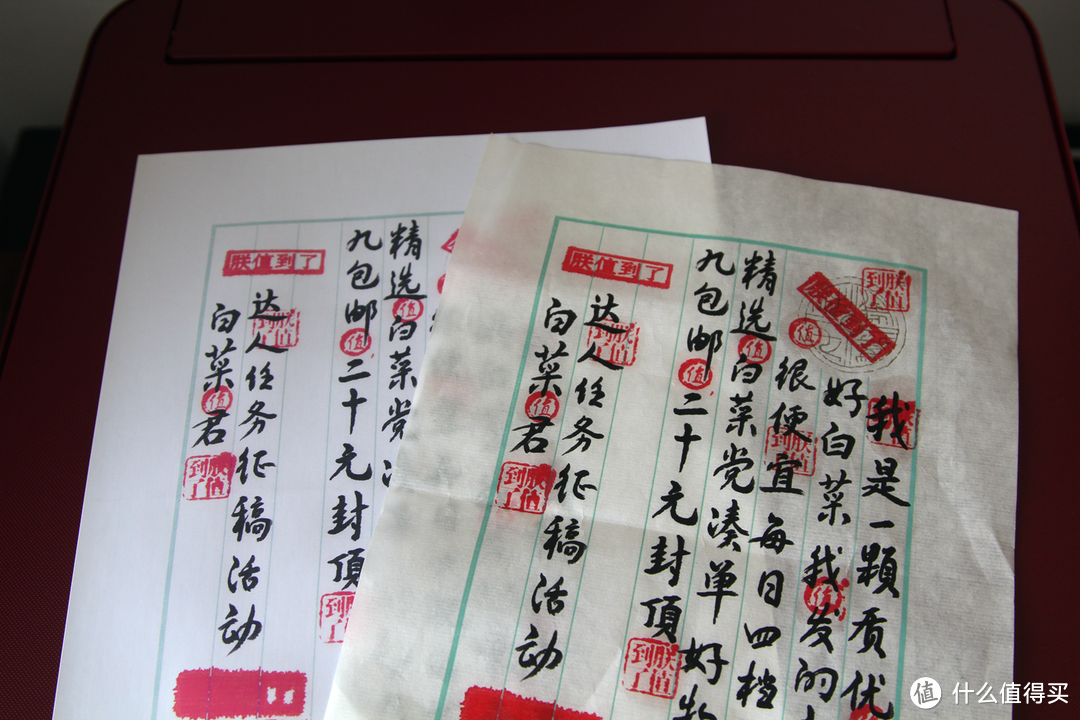 我是一颗质优
好白菜我发的
很便宜每日四档
精选白菜党凑单好
九包邮二十元封頂
达人任务征稿活动
白菜君
朕值到了
朕值到了
精选白菜党
九包邮二十元封頂
达人任务征稿活动
白菜君
朕值到了
值 什么值得买